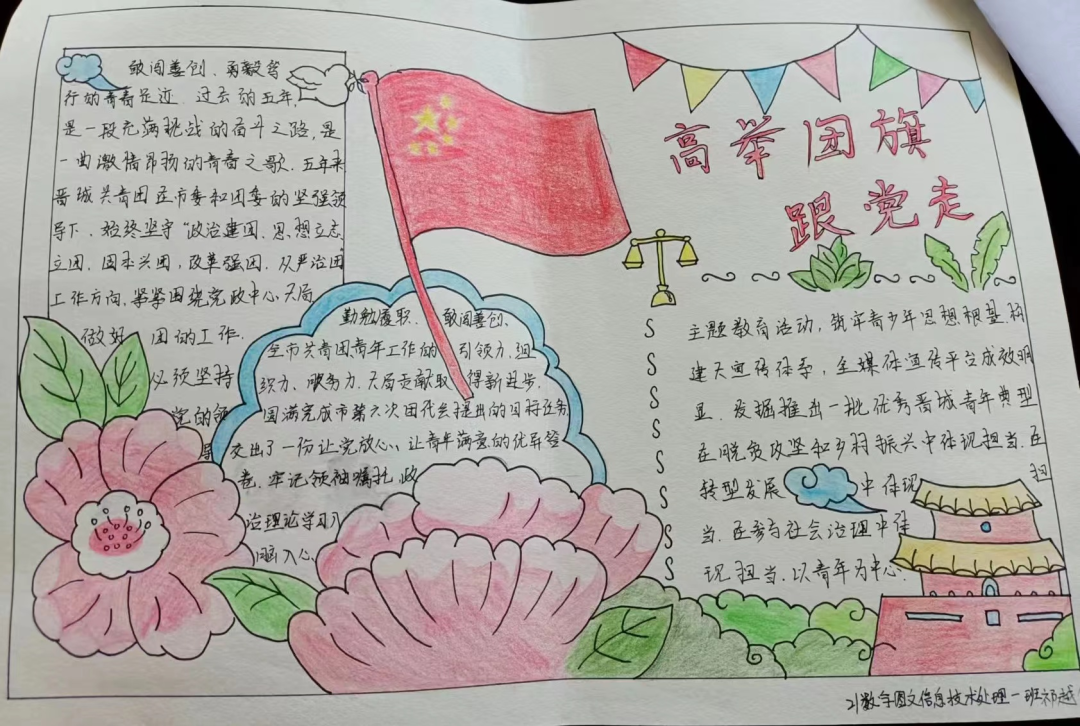 高举团旗
跟党走
敢闯善创、勇毅笃
行的青春足迹. 过去的五年,
是一段充满挑战的奋斗之路,是
一曲激情昂扬的青春之歌. 五年来
晋城共青团在市委和团委的坚强领
导下、始终坚守“政治建团、思想立志
立团、固本兴团,改革强团、从严治团
工作方向,紧紧围绕党政中心大局
做好 团的工作.
必须坚持
党的领
导
勤勉履职. 敢闯善创、
全市共青团青年工作的引领力、组
织力、服务力、大局贡献取得新进步.
圆满完成市第六次团代会提出的目标任务
交出了一份让党放心、让青年满意的优异答
卷. 牢记领袖嘱托 政
治理论学习入
涵入心.
主题教育活动,筑牢青少年思想根基.构
建大宣传体系, 全媒体宣传平台成效明
显. 发掘推出一批优秀晋城青年典型
在脱贫攻坚和乡村振兴中体现担当.在
转型发展 中体现 担
当. 在参与社会治理中体
现担当.以青年为中心.
21数字图文信息技术处理一班祁越